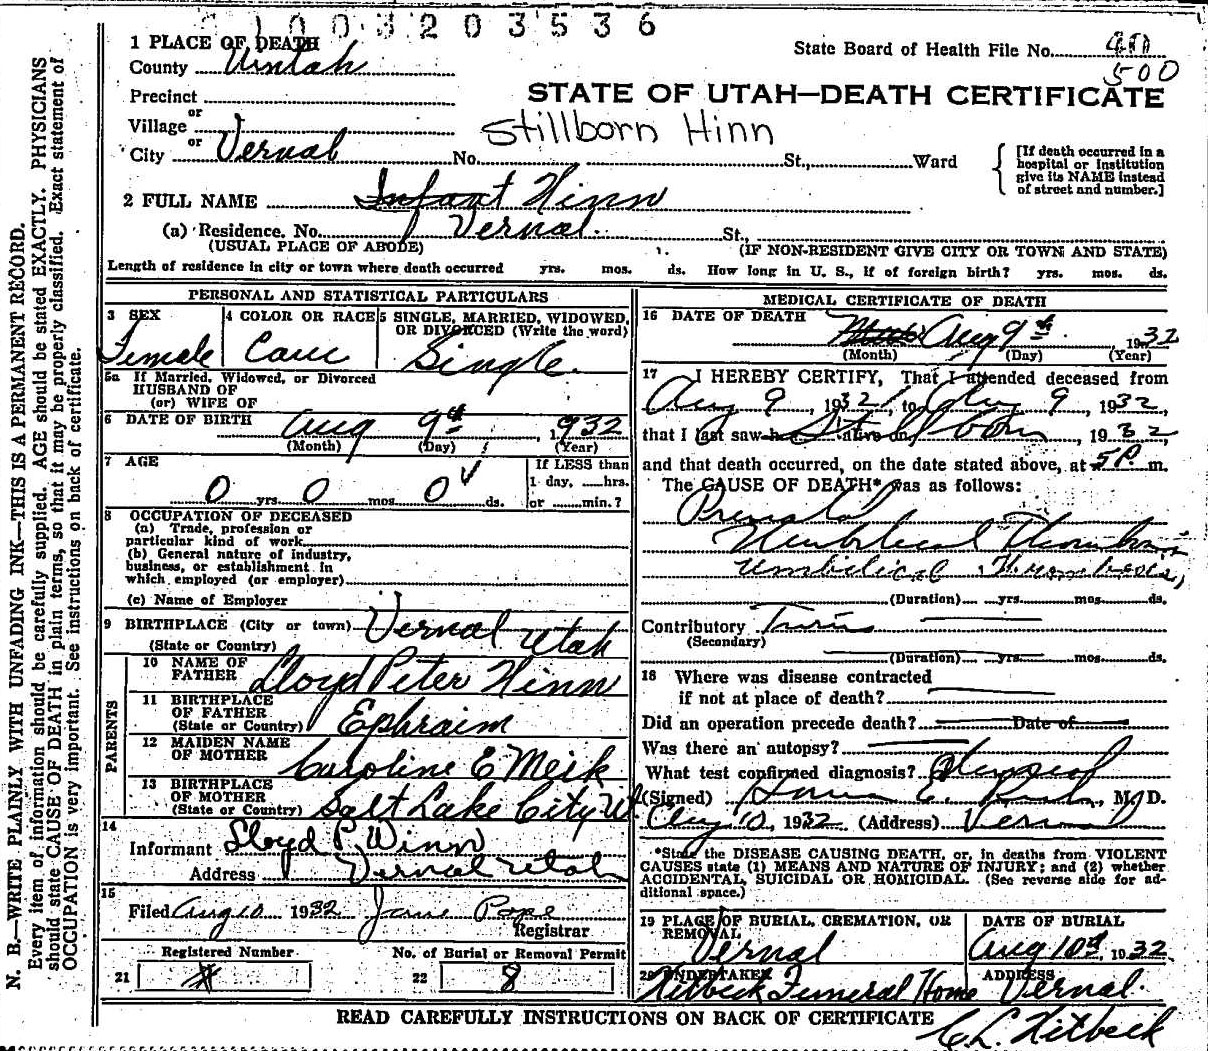 1003203536
1 PLACE OF DEATH
County Uintah
State Board of Health File No. 40
500
Precinct
STATE OF UTAH—DEATH CERTIFICATE
or
Village
Stillborn Hinn
or
City Vernal No. St., Ward
[If death occurred in a hospital or institution give its NAME instead of street and number.]
2 FULL NAME Infant Hinn
(a) Residence. No. Vernal. St.,
(USUAL PLACE OF ABODE) (IF NON-RESIDENT GIVE CITY OR TOWN AND STATE)
Length of residence in city or town where death occurred yrs. mos. ds. How long in U. S., if of foreign birth? yrs. mos. ds.
PERSONAL AND STATISTICAL PARTICULARS
3 SEX 4 COLOR OR RACE 5 SINGLE, MARRIED, WIDOWED,
OR DIVORCED (Write the word)
Female Cauc Single.
5a If Married, Widowed, or Divorced
HUSBAND OF
(or) WIFE OF
6 DATE OF BIRTH Aug 9th, 1932
(Month) (Day) (Year)
7 AGE If LESS than
1 day, hrs.
0 yrs. 0 mos. 0 ds. or min.?
8 OCCUPATION OF DECEASED
(a) Trade, profession or
particular kind of work
(b) General nature of industry,
business, or establishment in
which employed (or employer)
(c) Name of Employer
9 BIRTHPLACE (City or town) Vernal Utah
(State or Country)
PARENTS
10 NAME OF
FATHER Lloyd Peter Hinn
11 BIRTHPLACE
OF FATHER
(State or Country) Ephraim
12 MAIDEN NAME
OF MOTHER Caroline E Meik
13 BIRTHPLACE
OF MOTHER
(State or Country) Salt Lake City Ut
14
Informant Lloyd P. Winn
Address Vernal Utah
15
Filed Aug 10 1932 Pope
Registrar
Registered Number No. of Burial or Removal Permit
21 22 8
MEDICAL CERTIFICATE OF DEATH
16 DATE OF DEATH
Aug 9th, 1932
(Month) (Day) (Year)
17 I HEREBY CERTIFY, That I attended deceased from
Aug 9, 1932, to Aug 9, 1932,
that I last saw h alive on Stillborn, 1932,
and that death occurred, on the date stated above, at 5 P. m.
The CAUSE OF DEATH* was as follows:
Prenatal
Umbilical
Umbilical
(Duration) yrs. mos. ds.
Contributory Twins
(Secondary)
(Duration) yrs. mos. ds.
18 Where was disease contracted
if not at place of death?
Did an operation precede death? Date of
Was there an autopsy?
What test confirmed diagnosis?
(Signed) E., M. D.
Aug 10, 1932 (Address) Vernal
*State the DISEASE CAUSING DEATH, or, in deaths from VIOLENT
CAUSES state (1) MEANS AND NATURE OF INJURY; and (2) whether
ACCIDENTAL, SUICIDAL OR HOMICIDAL. (See reverse side for ad-
ditional space.)
19 PLACE OF BURIAL, CREMATION, OR
REMOVAL DATE OF BURIAL
Vernal Aug 10th, 1932.
20 UNDERTAKER ADDRESS
Hitbeck Funeral Home Vernal.
READ CAREFULLY INSTRUCTIONS ON BACK OF CERTIFICATE
C. L. Hitbeck
N. B.—WRITE PLAINLY WITH UNFADING INK—THIS IS A PERMANENT RECORD.
Every item of information should be carefully supplied. AGE should be stated EXACTLY. PHYSICIANS
should state CAUSE OF DEATH in plain terms, so that it may be properly classified. Exact statement of
OCCUPATION is very important. See instructions on back of certificate.